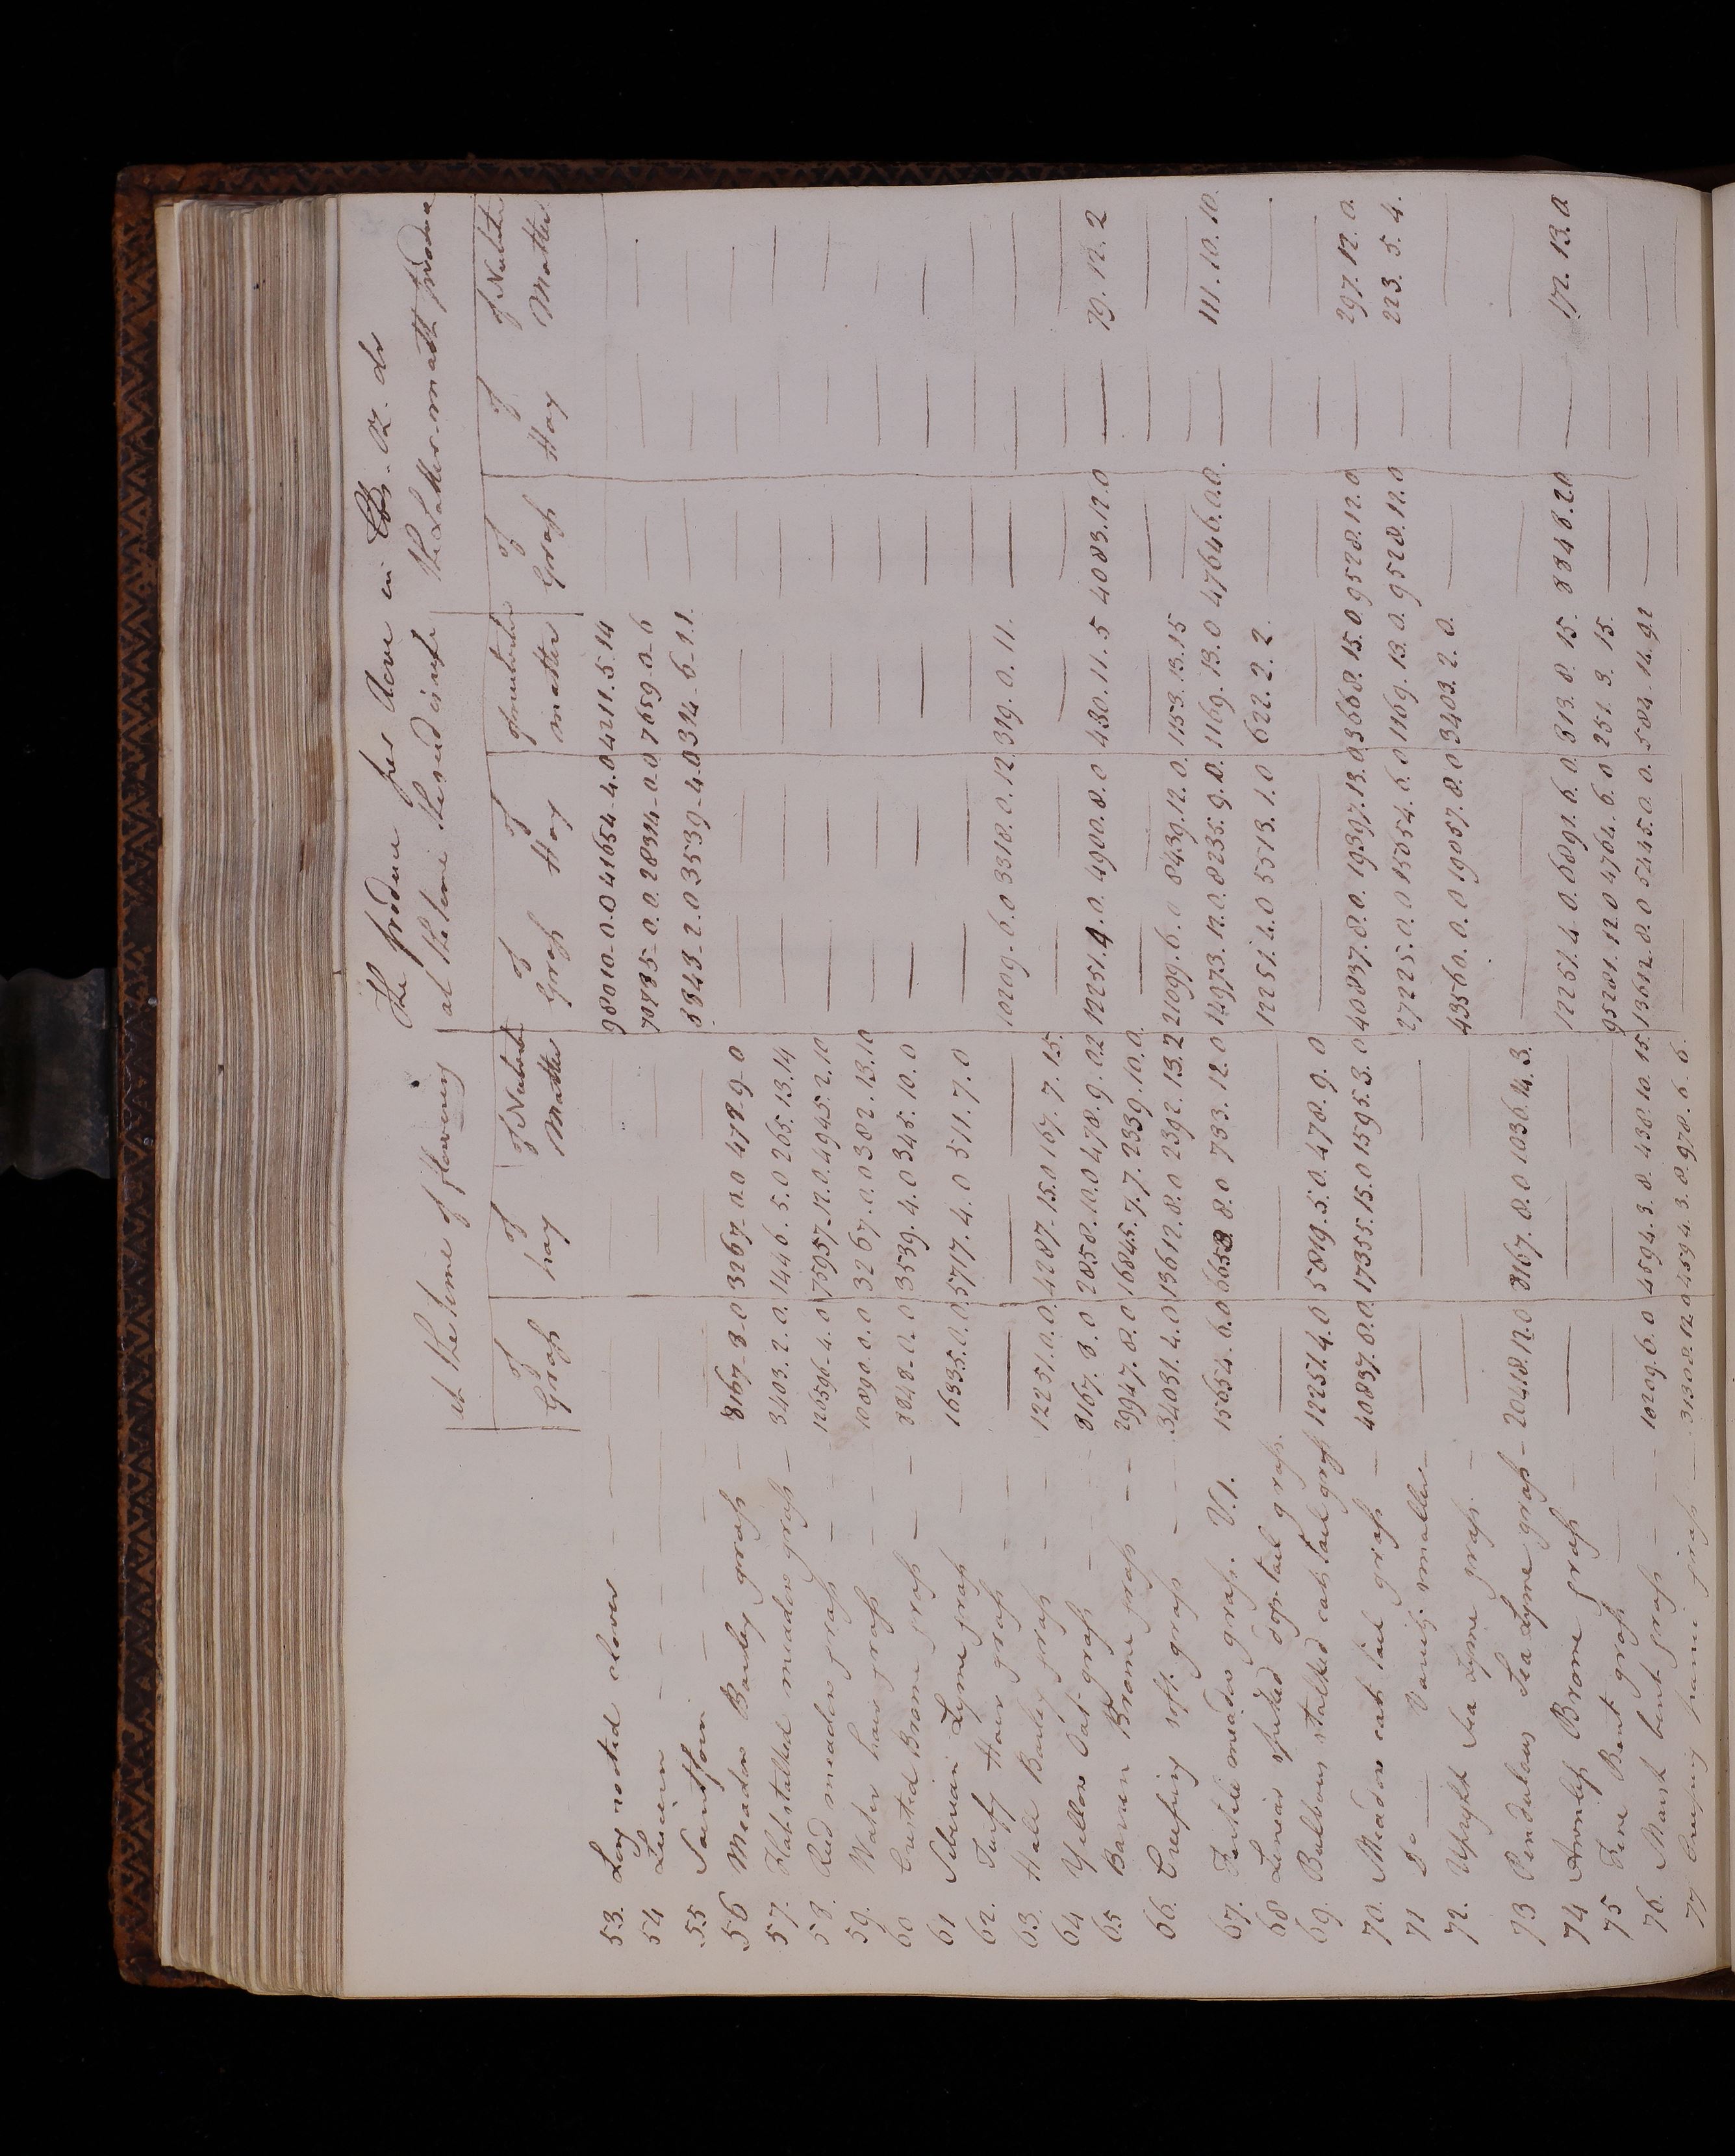 The produce per Acre in lbs. oz. dr
at the time of flowering at the time the seed is ripe the Latter-math produce
of Grass of hay of Nutrit. Matter of Grass of Hay of nutritive matter of Grass of Hay of Nutritive Matter
53. Long rooted clover — — 98010-0-0 41654-4.0 4211.5.14 — — —
54 Lucern — — — 70785-0.0. 28314-0.0 1659-0-6 — — —
55 Saintfoin — — — 8848-2.0 3539-4.0 314-6-11. — — —
56 Meadow Barley grass — 8167-8-0 3267-0.0 478-9-0 — — —
57. Flat stalked meadow grass — 3403.2.0. 1446.5.0 265.13.14 — — —
58. Reed meadow grass — 126596-4.0 75957-12.0. 4945.2.10 — — —
59. Water hair grass — — 10890.0.0 3267.0.0 382.13.10 — — —
60 Crested Brome grass — — 8848-0.0 3539.4.0 345.10.0 — — —
61 Siberian Lyme grass — 16335.0.0. 5717.4.0 511.7.0 — — —
62. Turfy Hair grass — — — 10209.6.0 3318.0.12 319.0.11. — — —
63. Wall Barley grass — — 12251.0.0. 4287-15.0 167.7.15. — — —
64 Yellow Oat grass — — 8167.8.0 2858.10.0 478.9.02 12251.4.0. 4900.8.0 430.11.5 4083.12.0 — 79.12.2
65 Barren Brome grass — — 29947.8.0 16845.7.7. 2339.10.0. — — —
66. Creeping soft grass — — 34031.4.0 13612.8.0 2392.13.2 21099.6.0 8439.12.0. 1153.13.15 — — —
67. Fertile meadow grass. V.1. 15654.6.0 6658.8.0 733.12.0 14973.12.0. 8235.9.0. 1169.13.0 4764 6.0.0. — 111.10.10.
68 Linear spiked dogs-tail grass. — — — 12251.4.0 5513.1.0 622.2.2. — — —
69. Bulbous stalked cats tail grass 12251.4.0 5819.5.0. 478.9.0 — — —
70. Meadow cats tail grass — 40837.8.0. 17355.15.0 1595.3.0 40837.8.0. 19397.13.0 3668.15.0 9528.12.0 — 297.12.0.
71 Do — Variety smaller — — — — 27225.0.0 15654.6.0 1169.13.0. 9528.12.0 — 223.5.4.
72. Upright Sea Lyme grass. — — — — 43560.0.0 19057.8.0 3403.2.0. — — —
73 Pendulous Sea Lyme grass — 20418.12.0 8167.8.0 1036.14.3. — — —
74 Awnless Brome grass — — — 12251.4.0. 6891.6.0. 313.8.15. 8848.2.0 — 172.13.0
75 Fine Bent grass — — — 95281.12.0 4764.6.0 251.3.15. — — —
76. Marsh bent grass — — 10209.6.0 4594.3.8. 438.10.15. 13612.8.0 5445.0.0. 584.14.9. — — —
77 Creeping panic grass — 31308.12.0 4594.3.8. 978.6.6. — — —